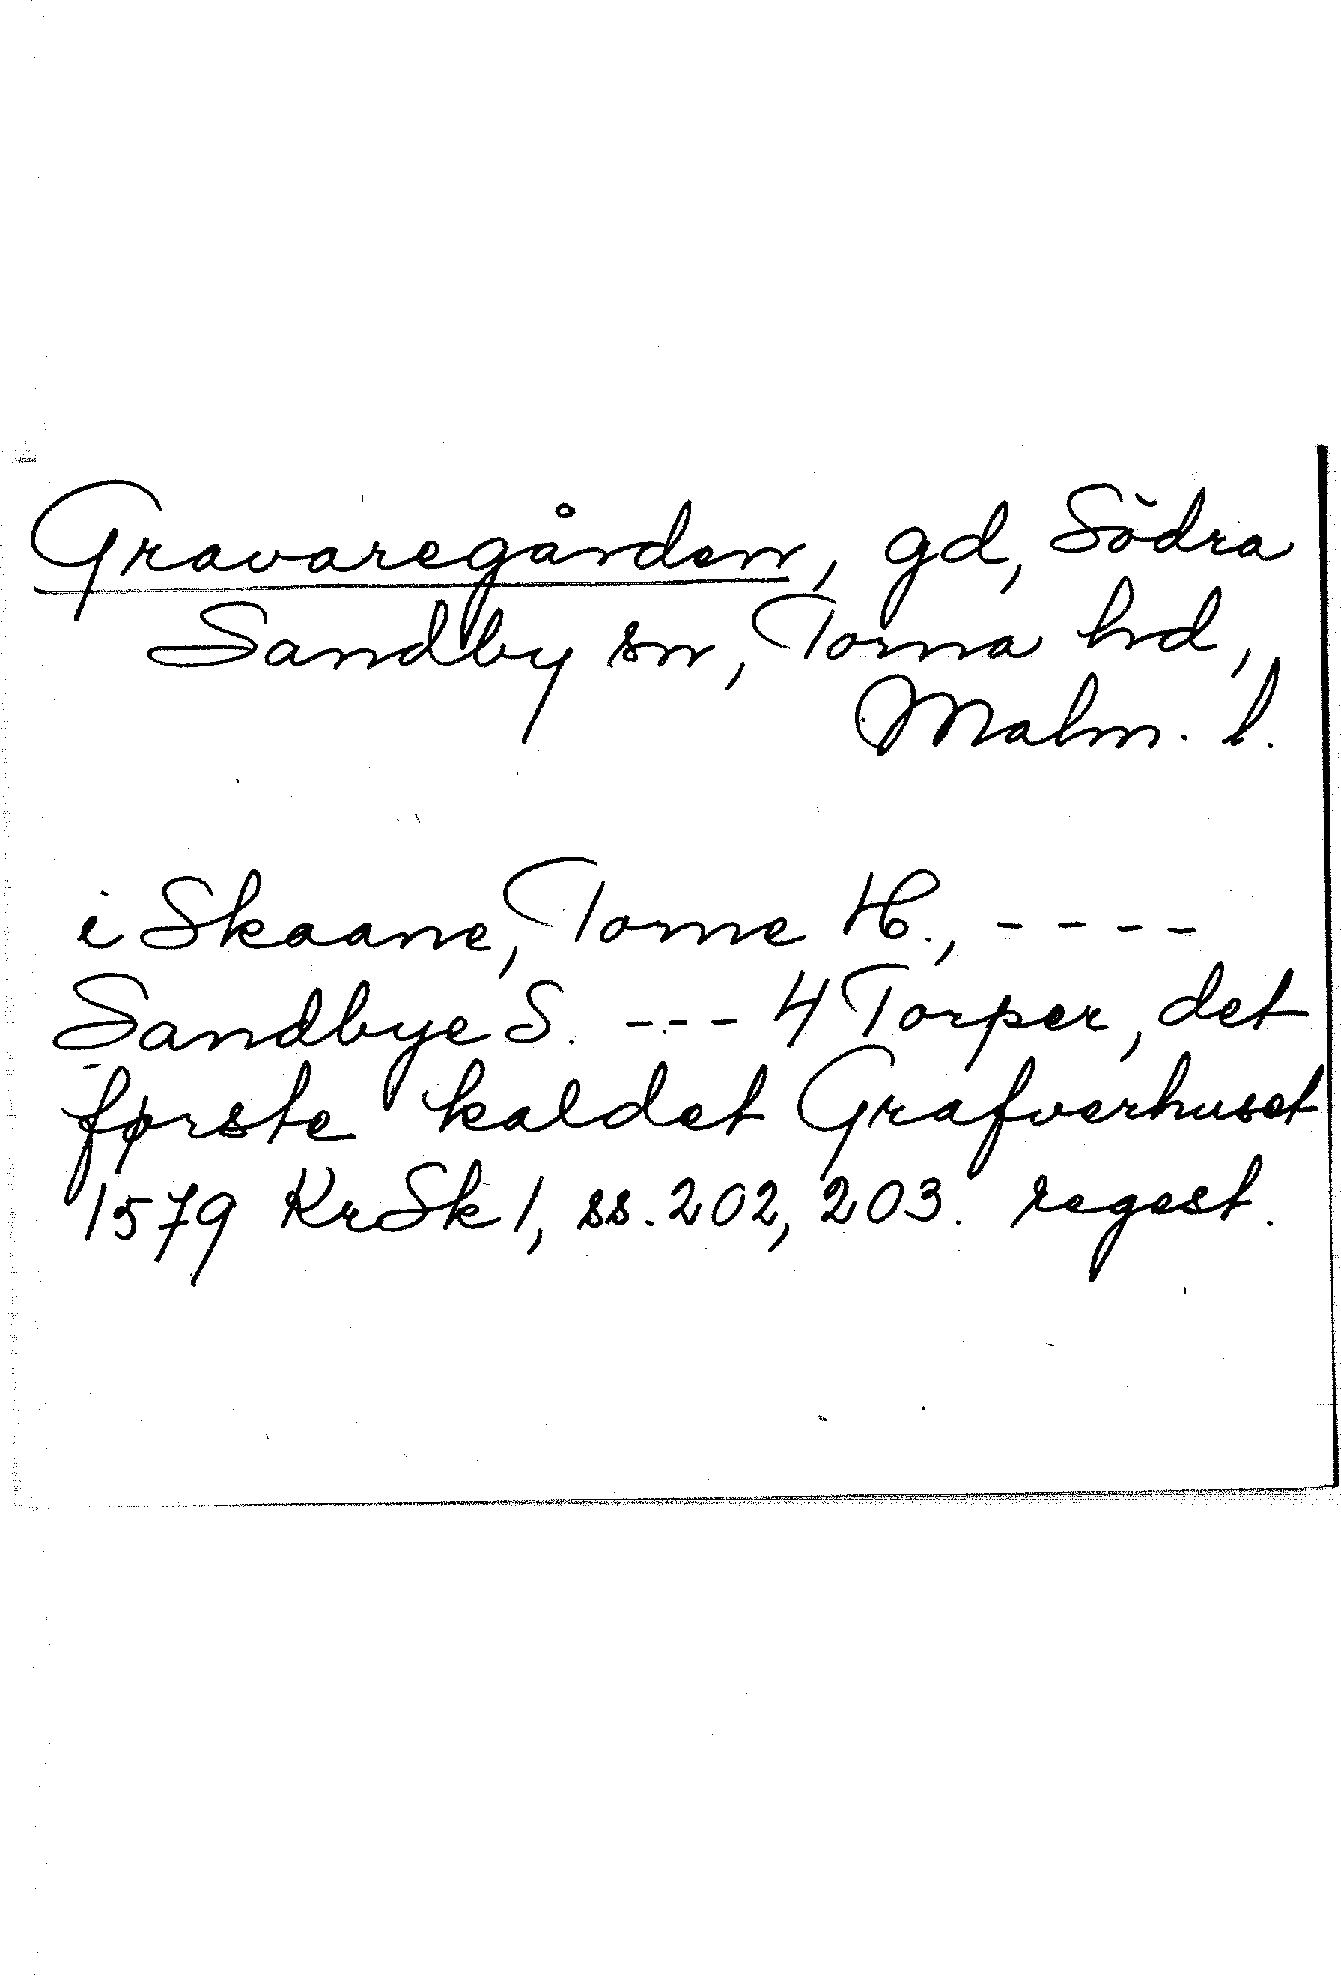 Gravaregården, gd, Södra
Sandby sn, Torna hd,
Malm. l.
i Skaane, Torne H., - - - -
Sandbye S. - - - - 4 Torper, det
første kaldet Grafverhuset
1579 KrSk 1, ss. 202, 203. regest.